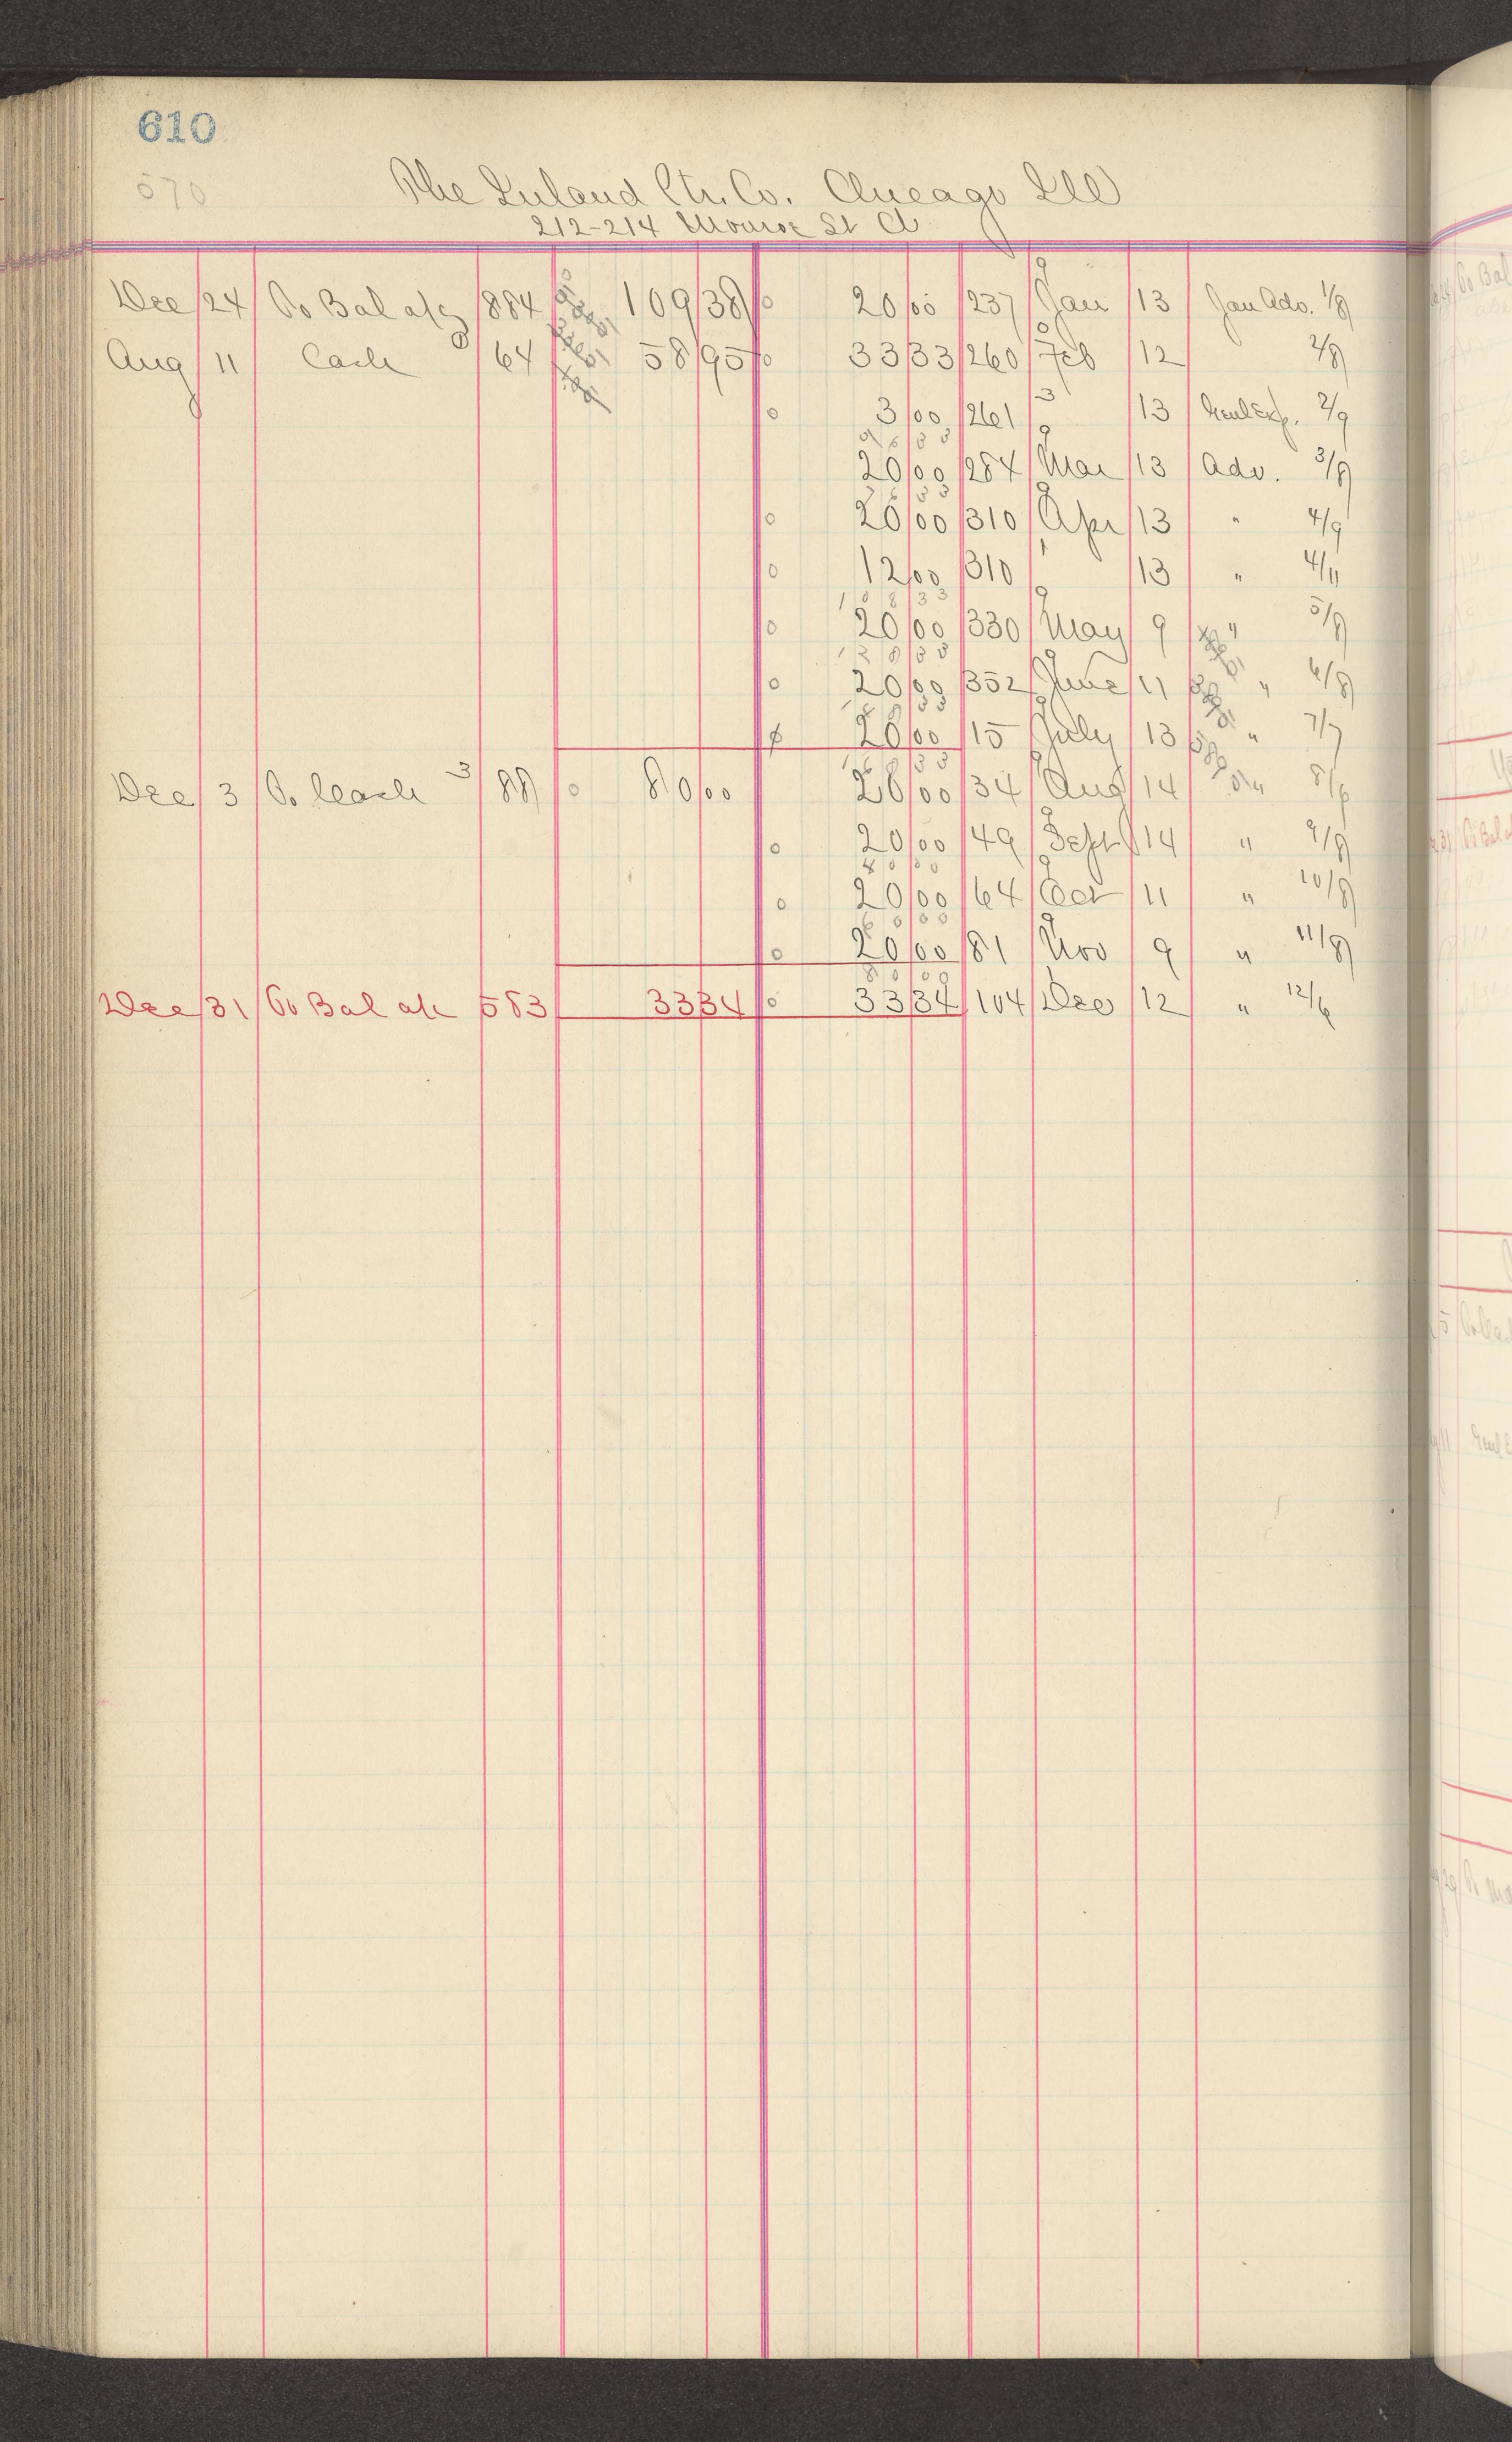 610
570
The Inland Ptr. Co. Chicago Ill
212-214 Monroe St C
Dec 24 To Bal a/c 884 109 38 20 00 237 Jan 9 13 Jan Adv. 1/8
Aug 11 Cash 64 58 95 33 33 260 Feb 12 2/8
3 00 261 3 13 Genl Exp. 2/9
20 00 284 Mar 9 13 Adv. 3/8
20 00 310 Apr 9 13 " 4/9
12 00 310 13 " 4/11
20 00 330 May 9 9 " 5/8
20 00 352 June 9 11 " 6/8
20 00 15 July 9 13 " 7/7
Dec 3 To Cash 3 88 80 00 20 00 34 Aug 9 14 " 8/6
20 00 49 Sept 14 " 9/8
20 00 64 Oct 9 11 " 10/8
20 00 81 Nov 9 9 " 11/8
Dec 31 To Bal a/c 583 33 34 33 34 104 Dec 12 " 12/6